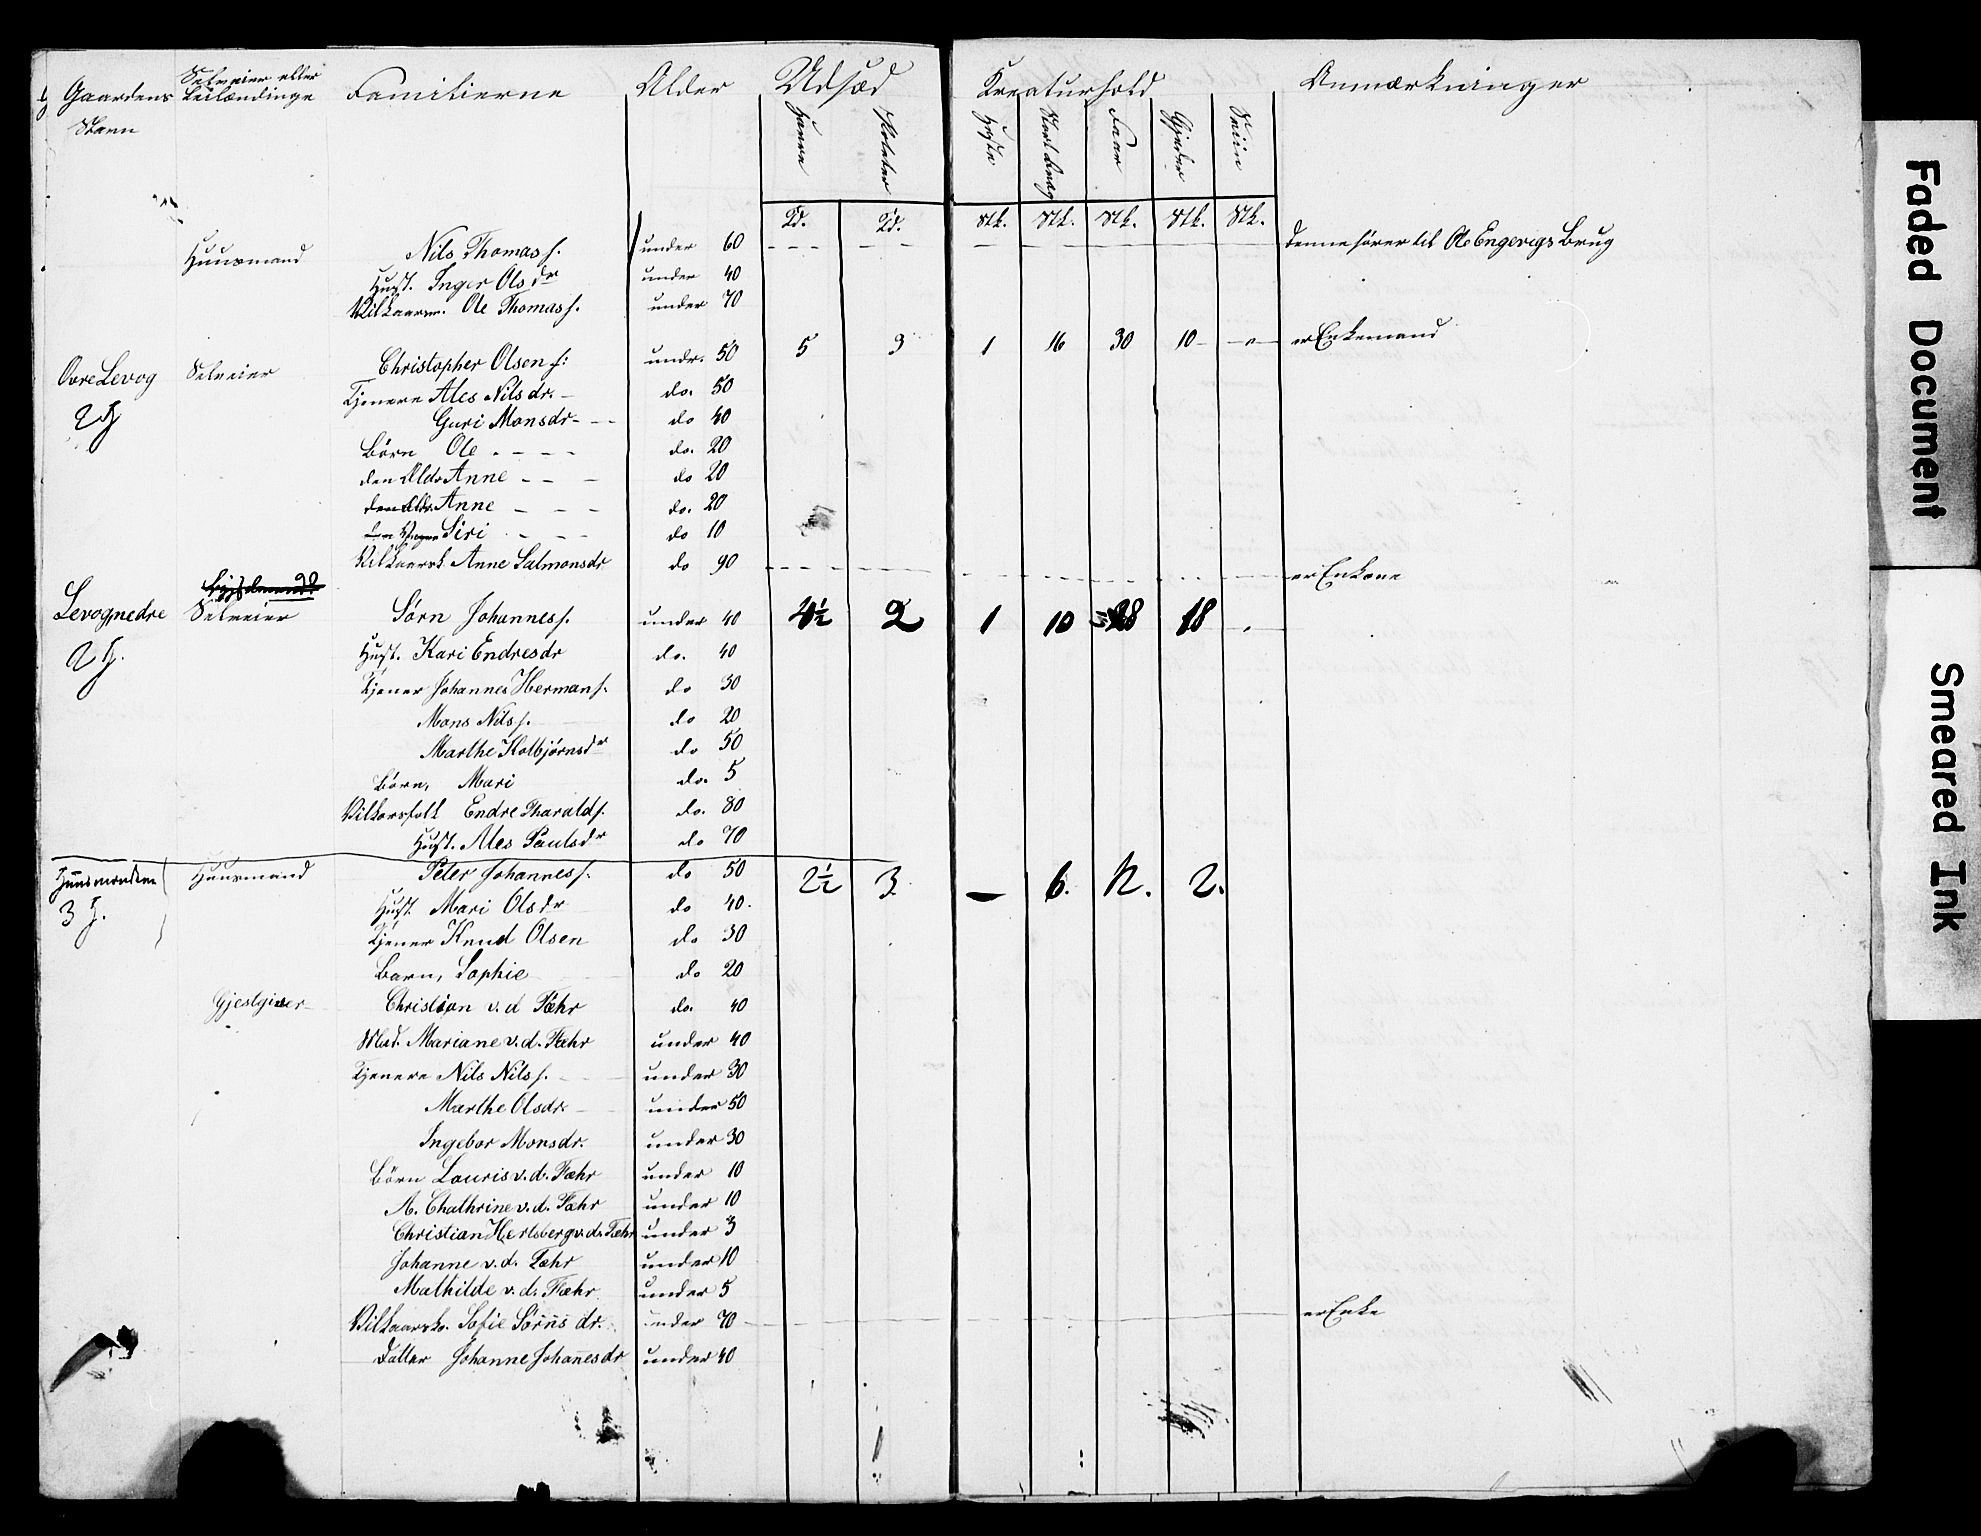 Gaardens Navn | Selveier eller Leilændinge | Familierne | Alder | Udsæd | Kreaturhold | Anmærkninger
Havre | Poteter | Heste | Faar | Gjeder | Sviin
Td. | Td. | Stk. | Stk. | Stk. | Stk. | Stk.
Huusmand | Nils Thomas f. | under 60 | Denne hører til Ole Engevigs Brug
Hust. Inger Olsdr | under 40
Vilkaarm. Ole Thomas f. | under 70
Ovre Levog | Selveier | Christopher Olsen f: | undr. 50 | 5 | 3 | 1 | 16 | 30 | 10 | er Enkemand
2 F
Tjenere Ales Nilsdr. | do. 50
Guri Monsdr | do 40
Börn Ole | do. 20
den Eldr Anne | do 20
Anne | do. 20
Siri | do 10
Vilkaarsk. Anne Salmonsdr | do 90 | er Enkone
Levog nedre | Selveier | Sørn Johannes f. | under 40 | 4½ | 2 | 1 | 10 | 28 | 18
2 F.
Hust. Kari Endresdr | do. 40
Tjener Johannes Herman f. | do 30
Mons Nils f. | do 20
Marthe Kolbjørnsdr | do 50
Börn, Mari | do. 5
Vilkorsfolk Endre Tharald f. | do. 80
Hust. Ales Paulsdr | do 70
Huusmand | Peter Johannes f. | do 50 | 2½ | 3 | — | 6. | 12. | 2.
3 F.
Hust. Mari Olsdr | do 40.
Tjener Knud Olsen | do 30
Barn, Sophie | do 20
Gjestgiver | Christian v. d Fæhr | do. 40
Mad. Mariane v. d. Fæhr | under 40
Tjenere Nils Nils f. | under 30
Marthe Olsdr. | under 50
Ingebor Monsdr. | under 30
Börn Louris v. d. Fæhr | under 10
A. Chathrine v. d. Fæhr | under 10
Christian Hertsberg v. d. Fæhr | under 3
Johanne v. d. Fæhr | under 10
Mathilde v. d. Fæhr | under 5
Vilkaarsk. Sofie Sörnsdr. | under 70 | er Enke
Datter Johanne Johanesdr | under 40
Faded Document
Smeared Ink